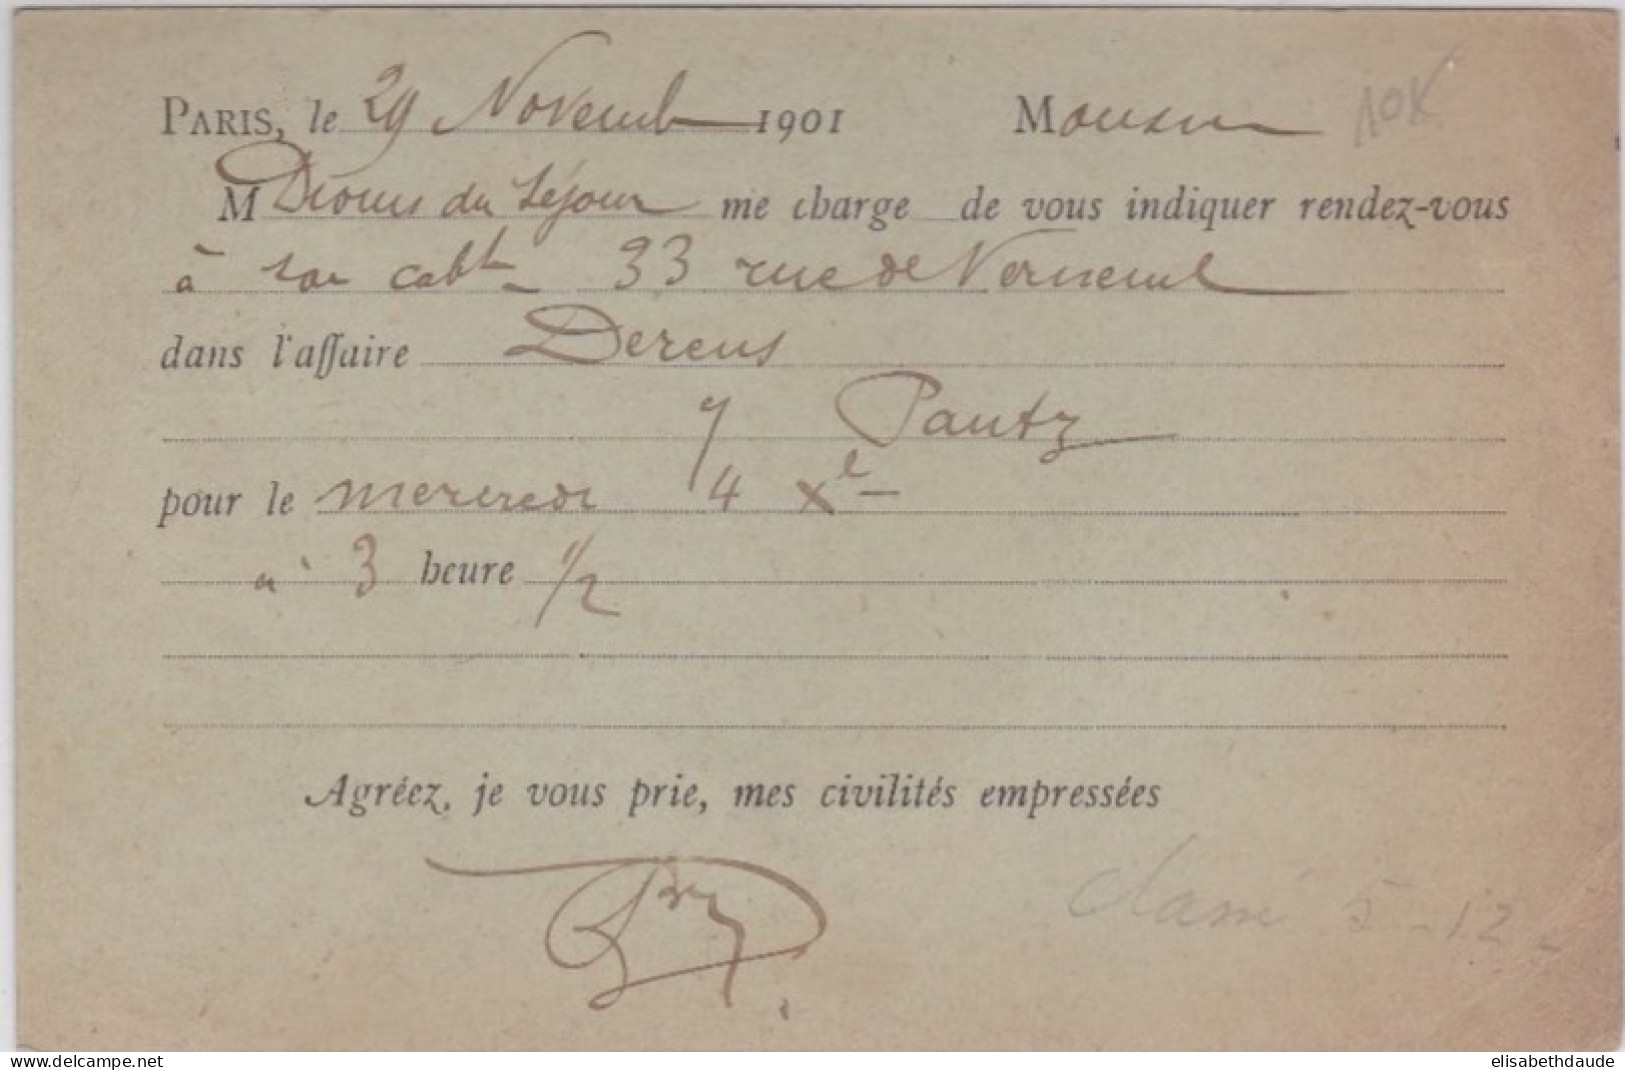 PARIS, le 29 Novemb 1901 Monsieur 10K
M Drouis du Séjour me charge de vous indiquer rendez-vous
à son cabt - 33 rue de Verneuil
dans l'affaire Dereus
/ Pautz
pour le mercredi 4 Xe -
à 3 heure 1/2
Agréez, je vous prie, mes civilités empressées
classé 5-12-
www.delcampe.net
elisabethdaude